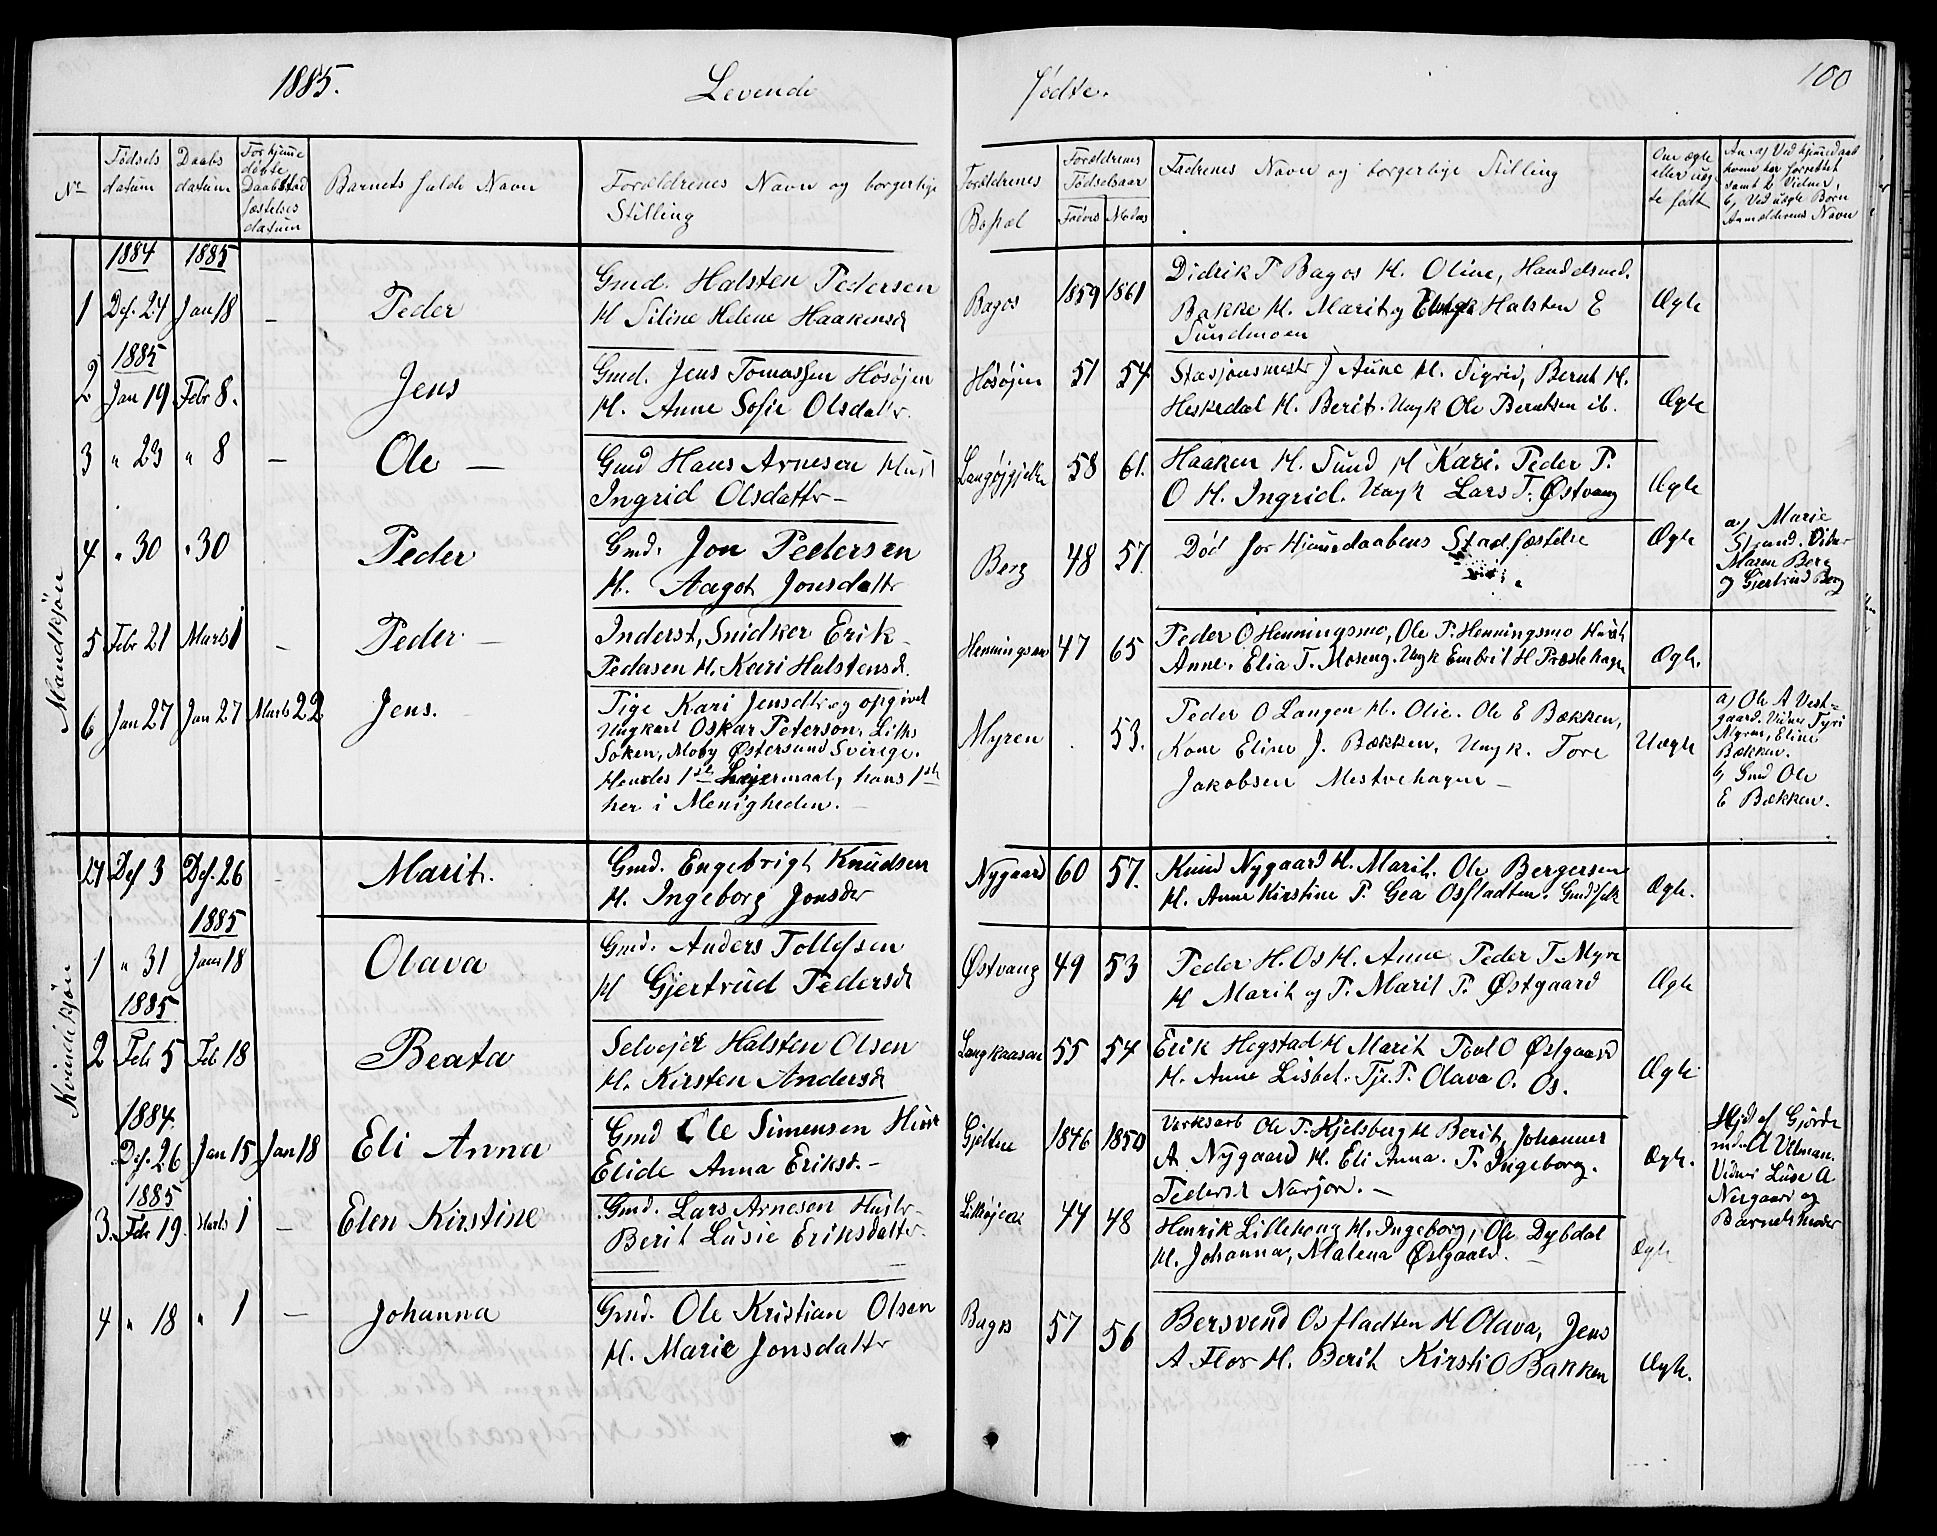 1885.
Levende
Fødte.
100
No
Fødsels datum
Daabs datum
For hjemmedøbte Daabstadfæstelses datum
Barnets fulde Navn
Forældrenes Navn og borgerlige Stilling
Forældrenes Bopæl
Forældrenes Fødselsaar
Fadrs
Modrs
Fadrenes Navn og borgerlige Stilling
Om ægte eller uægte født
Mandkjön
1884
1885
1 Des. 24 Jan 18 –
Peder
Gmd. Halsten Pedersen
H Siline Helene Haakensd
Bagos 1859 1861
Didrik P Bagos H. Oline, Handelsmd.
Bakke H. Marit og Ungk Halsten E
Sundmoen
Ægte
1885
2 Jan 19. Febr 8.
Jens
Gmd. Jens Tomassen Høsøjen
H. Anne Sofie Olsdattr.
Høsøjen 51 54
Stasjonsmestr J Aune H. Sigrid, Bernt H.
Heskedal H. Berit. Ungk Ole Berntsen ib.
Ægte
3 " 23 " 8 –
Ole –
Gmd Hans Arnesen Hust
Ingrid Olsdattr –
58 61.
Haaken H. Sund H Kari. Peder P.
O H. Ingrid. Ungk Lars T. Østvang
Ægte
4 " 30 " 30
Peder
Gmd. Jon Pedersen
H. Aagot Jonsdattr
Berg 48 57.
Død for Hjemmedaabens Stadfæstelse
Ægte
a) Marie
Strand. Vidner
Maren Berg
og Gjertrud Berg
5 Febr 21 Marts 1 –
Peder –
Inderst, Snidker Erik
Pedersen H. Kari Halstensd.
Henningsmo 47 65
Peder O Henningsmo, Ole P. Henningsmo Hust
Anne. Elia T. Moseng. Ungk Embrit H Præstehagen
Ægte.
6 Jan 27 Jan 27 Marts 22
Jens.
Pige Kari Jensdtr og opgivet
Ungkarl Oskar Peterson, Liths
Soken, Moby Østersund Sverige.
Hendes 1ste Leiermaal, hans 1ste
her i Menigheden. –
Myren . 53.
Peder O Langen H. Olie. Ole E Bækken,
Kone Eline J. Bækken, Ungk. Tore
Jakobsen Mestvehagen –
Uægte
a) Ole A Vest-
gaard. Vidner Gyri
Myren, Eline
Bækken.
b) Gmd Ole
E Bækken.
Kvindekjön
27 Des 3 Des. 26 –
Marit.
Gmd. Engebrigt Knudsen
H. Ingeborg Jonsdtr
Nygaard 60 57.
Knud Nygaard H. Marit. Ole Bergersen
H. Anne Kirstine P. Gea Osfladten. Gmdsfolk
Ægte.
1885
1 " 31 Janr 18
Olava
Gmd. Anders Tollefsen
H Gjertrud Pedersd
Østvang 49 53
Peder H. Os H. Anne Peder T. Myre
H Marit og P. Marit P. Østgaard
Ægte
1885
2 Feb 5 Feb 18
Beata
Selvejer Halsten Olsen
H. Kirsten Andersd
Langkaasen 55 54
Erik Hegstad H Marit Povl O Østgaard
H. Anne Lisbet. Tje. P. Olava O. Os.
Ægte
1884.
Des. 26 Jan 15 Jan 18
Eli Anna
Gmd Ole Simensen Hust
Elide Anna Eriksd. –
Gjelten 1846 1850
Verksarb Ole P. Kjelsberg H Berit, Johannes
A Nygaard H. Eli Anna. P. Ingeborg.
Pedersd Narjor. –
Ægte.
Hjd af Gjorde
mdr A Utman.
Vidner Luse A
Nergaard og
Barnets Moder
1885
3. Feb 19. Marts 1 –
Elen Kirstine
Gmd. Lars Arnesen Hustr
Berit Lusie Eriksdattr
44 48
Henrik Lillehaug H. Ingeborg, Ole Dybdal
H. Johanna, Malena Østgaard. –
Ægte
4 " 18 " 1 –
Johanna
Gmd. Ole Kristian Olsen
H. Marie Jonsdattr
Bagos 57 56
Bersvend Osfladten H Olava, Jens
A Flor H. Berit Kirsti O Bakken
Ægte.